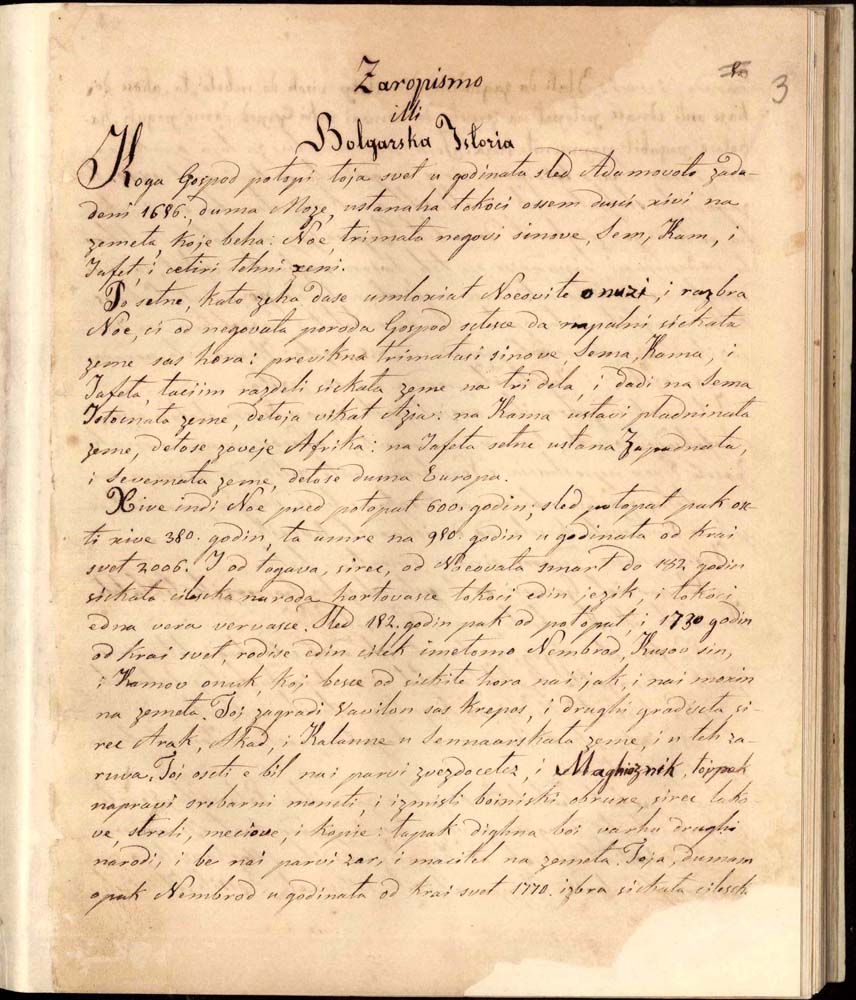 3
Zaropismo
illi
Bolgarska Istoria
Koga Gospod potopi toja svet u godinata sled Adamovoto zada-
deni 1686, duma Moze, ustanaha tokoci ossem dusci xivi na
zemeta, koje beha: Noe, trimata negovi sinove, Sem, Kam, i
Jafet, i cetiri tehni xeni.
Po setne, kato zeha dase umloxiat Noeovite onuzi, i razbra
Noe, ci od negovata poroda Gospod sctesce da napalni sickata
zeme sas hora: previkna trimatasi sinove, Sema, Kama, i
Jafeta, taciim razdeli sickata zeme na tri dela, i dadi na Sema
Istocnata zeme, detoja vikat Azia: na Kama ustavi pladninata
zeme, detose zoveje Afrika: na Jafeta setne ustana Zapadnata,
i Severnata zeme, detose duma Europa.
Xive indi Noe pred potopat 600. godin; sled potopat pak ox-
ti xive 380. godin, ta umre na 980. godin u godinata od krai
svet 2006. I od togava, sirec, od Noeovata smart do 182 godin
sickata cilescka naroda hortovasce tokoci edin jezik, i tokoci
edna vera vervasce. Sled 182. godin pak od potopat, i 1730 godin
od krai svet, rodise edin cilek imetomo Nembrod, Kusov sin,
i Kamov onuk, koj besce od sickite hora nai jak, i nai moxin
na zemeta. Toj zagradi Vavilon sas krepos, i drughi gradiscta, si-
rec Arak, Akad, i Kalanne u Sennaarskata zeme, i u teh za-
ruva. Toi oscti e bil nai parvi zvezdocetez, i Maghioznik, tojpak
napravi srebarni moneti, i izmisli boiniski obruxe, sirec lako-
ve, streli, meciove, i kopie: tapak dighna boi varhu drughi
narodi, i be nai parvi zar, i macitel na zemeta. Toja, dumam
opak Nembrod u godinata od krai svet 1770. izbra sickata cilesck.